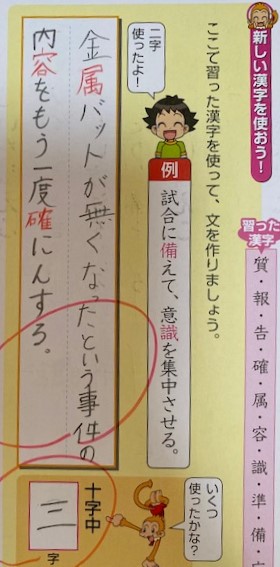 新しい漢字を使おう！
習った漢字
質・報・告・確・属・容・識・準・備・
ここで習った漢字を使って、文を作りましょう。
例
試合に備えて、意識を集中させる。
二字使ったよ！
金属バットが無くなったという事件の
内容をもう一度確にんする。
いくつ使ったかな？
十字中
三
字